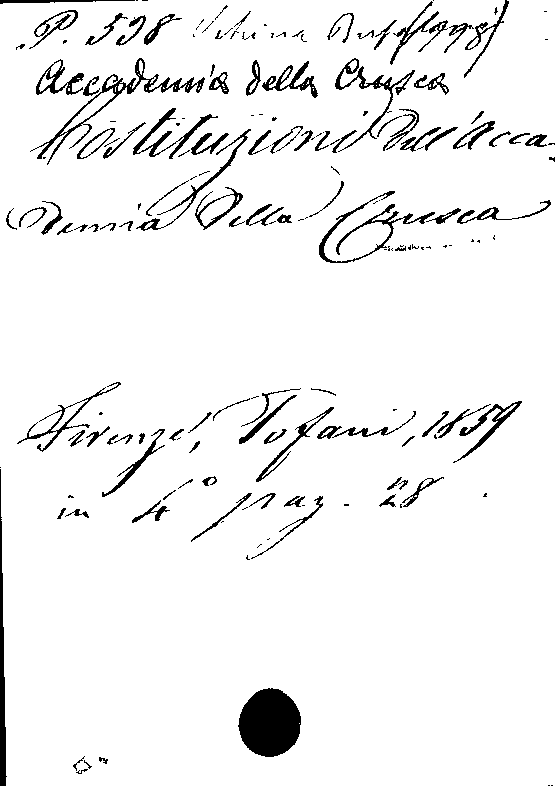 P. 538
Accademia della Crusca
Costituzioni dell'Acca-
demia della Crusca
Firenze, Tofani, 1859
in 4° pag. 28.